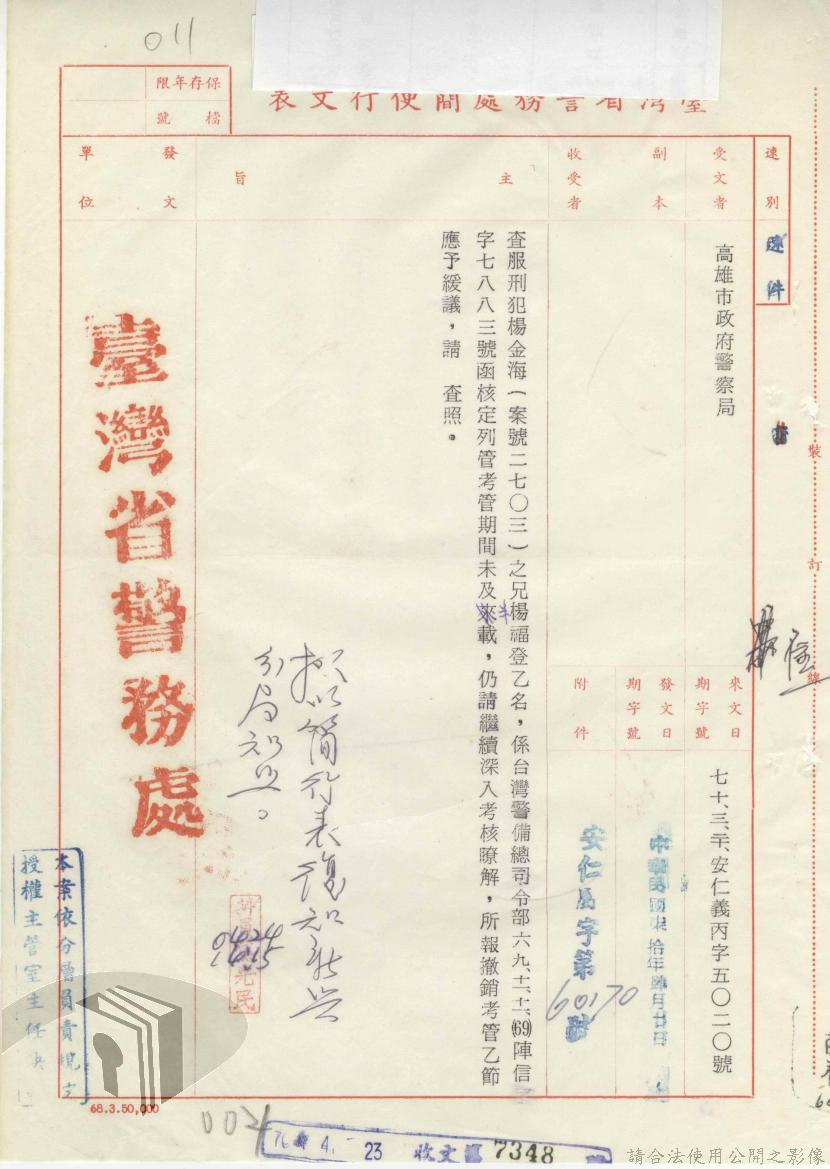 011
保存年限
檔號
臺灣省警務處簡便行文表
速別
速件
受文者
高雄市政府警察局
副本收受者
來文日期字號
七十、三、二六、安仁義丙字五〇二〇號
發文日期字號
中華民國柒拾年肆月廿日
安仁勇字第60170號
附件
主旨
查服刑犯楊金海(案號二七〇三)之兄楊福登乙名，係台灣警備總司令部六九、十二、十二、(69)陣信字
字七八八三號函核定列管考管期間未及半載，仍請繼續深入考核瞭解，所報撤銷考管乙節
應予緩議，請 查照。
擬以簡行表復知新興
分局知照。
0424
1415
發文單位
臺灣省警務處
本案依分層負責規定
授權主管室主任決
裝
訂
線
68.3.50,000
002
70. 4. 23 收文 7348
請合法使用公開之影像